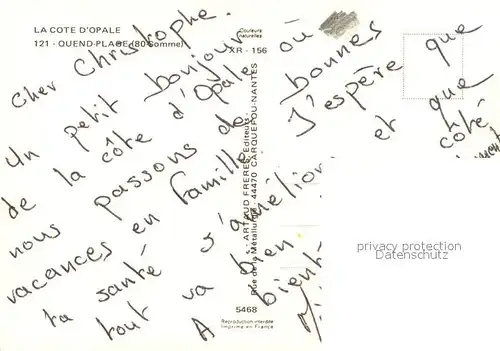 LA COTE D'OPALE
121 - QUEND-PLAGE (80-Somme)
Couleurs
naturelles
XR - 156
Cher Christophe.
Un petit bonjour
de la côte d'Opale où
nous passons de bonnes
vacances en famille. J'espère que
ta santé s'amélior et que
tout va bien côté
A bient-
- ARTAUD FRERES, Editeurs -
Rue de la Métallurgie - 44470 CARQUEFOU-NANTES
5468
Reproduction interdite
Imprimé en France
privacy protection
Datenschutz